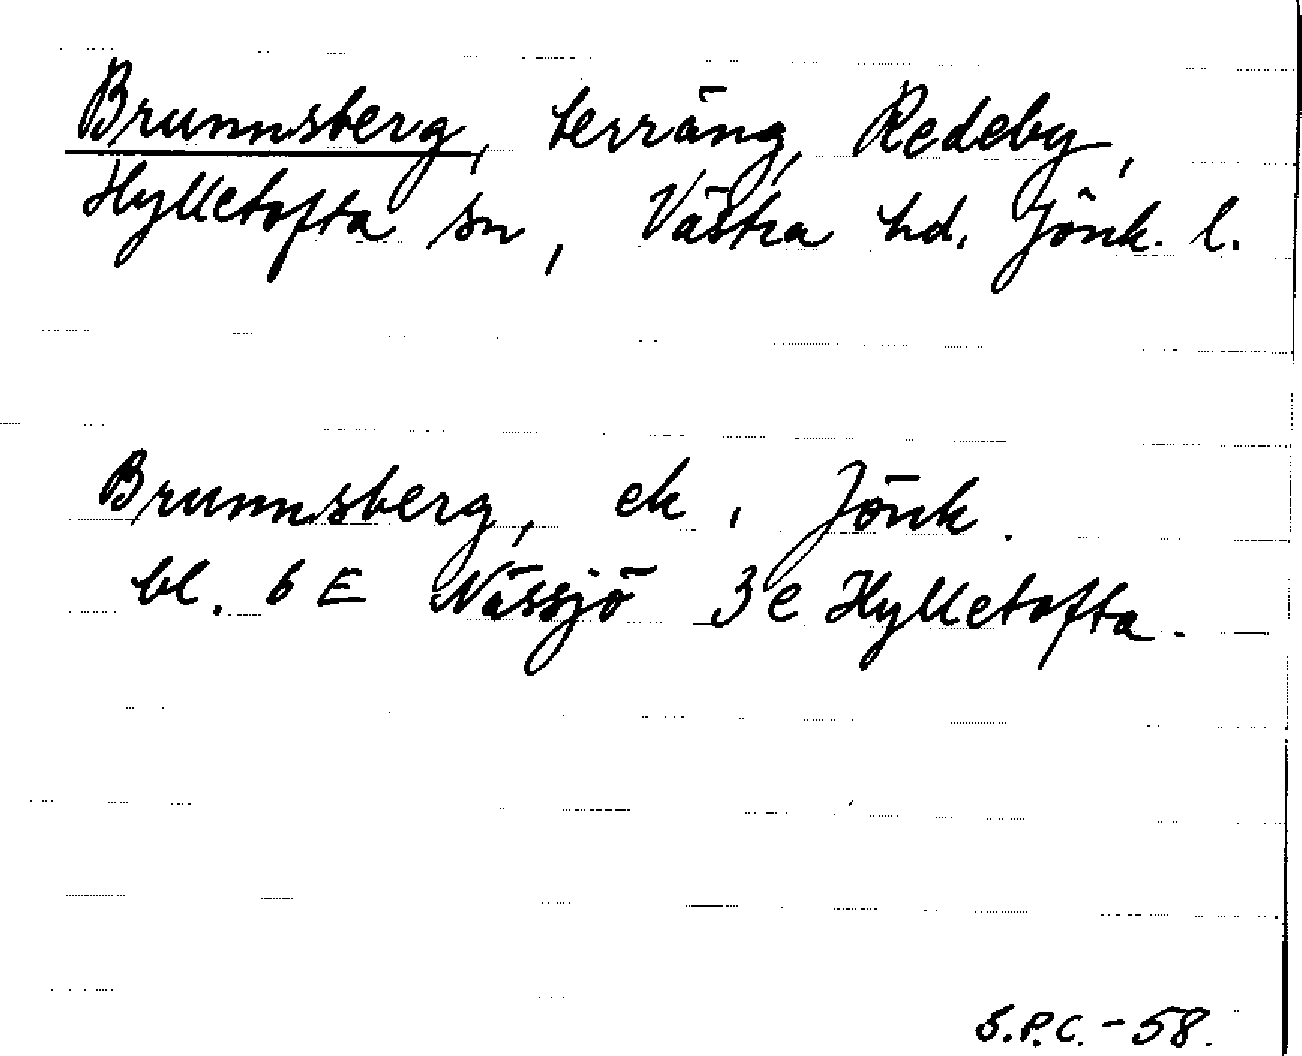 Brunnsberg, terräng, Redeby,
Hylletofta sn, Västra hd. Jönk. l.
Brunnsberg, ek, Jönk.
bl. 6 E Nässjö 3e Hylletofta.
S.P.C. - 58.